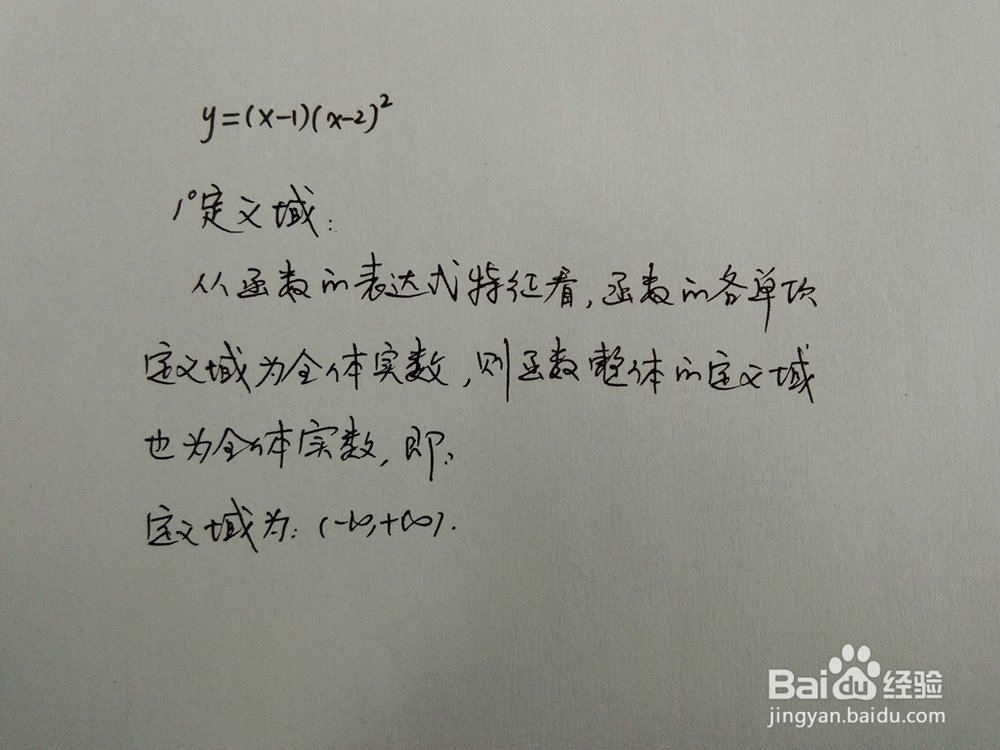 y=(x-1)(x-2)²
1°定义域:
从函数的表达式特征看,函数的各单项
定义域为全体实数,则函数整体的定义域
也为全体实数,即:
定义域为:(-∞,+∞).
Baidu经验
jingyan.baidu.com